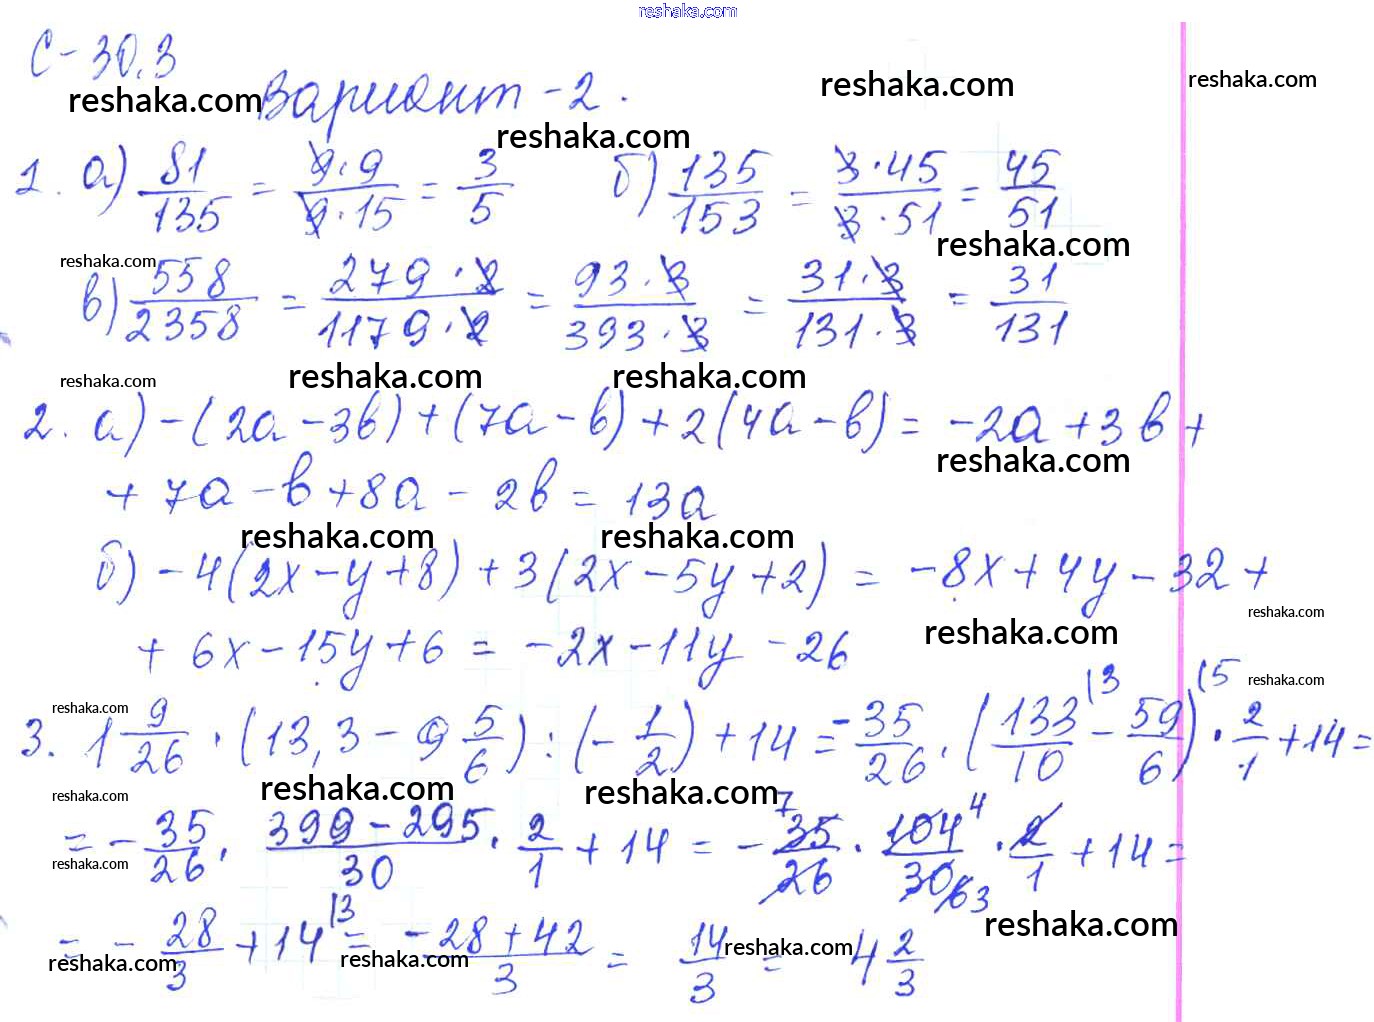 reshaka.com
С-30.3
reshaka.com Вариант-2. reshaka.com reshaka.com
reshaka.com
1. а) 81/135 = 9·9/9·15 = 3/5 б) 135/153 = 3·45/3·51 = 45/51
reshaka.com reshaka.com
в) 558/2358 = 279·2/1179·2 = 93·3/393·3 = 31·3/131·3 = 31/131
reshaka.com reshaka.com reshaka.com
2. а) -(2a-3b)+(7a-b)+2(4a-b) = -2a+3b+
reshaka.com
+7a-b+8a-2b = 13a
reshaka.com reshaka.com
б) -4(2x-y+8)+3(2x-5y+2) = -8x+4y-32+
reshaka.com reshaka.com
+6x-15y+6 = -2x-11y-26
reshaka.com reshaka.com
3. 1 9/26 · (13,3 - 9 5/6) : (- 1/2) + 14 = - 35/26 · (133/10 (3 - 59/6 (5) · 2/1 + 14 =
reshaka.com reshaka.com reshaka.com
= - 35/26 · 399-295/30 · 2/1 + 14 = - 35 7/26 · 104 4/30 6 3 · 2/1 + 14 =
reshaka.com reshaka.com
= - 28/3 + 14 (3 = -28+42/3 = 14/3 = 4 2/3
reshaka.com reshaka.com reshaka.com